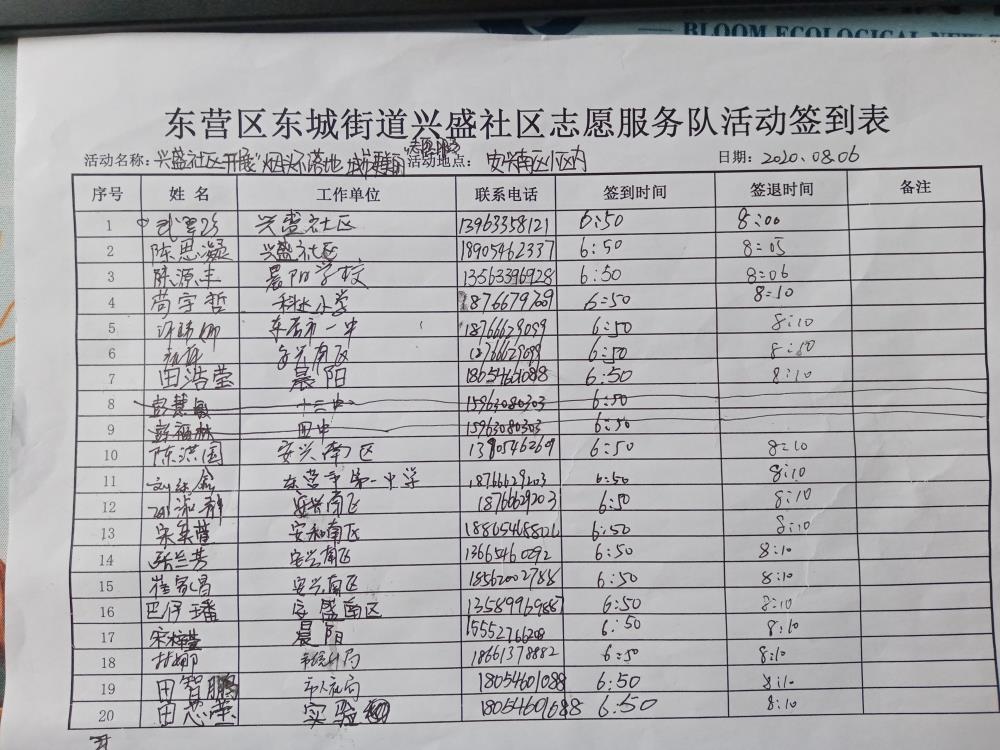 BLOOM ECOLOGICAL NEW
东营区东城街道兴盛社区志愿服务队活动签到表
活动名称：兴盛社区开展"烟头不落地 城市更美丽"志愿服务 活动地点：安兴南区小区内 日期：2020.08.06
序号 姓名 工作单位 联系电话 签到时间 签退时间 备注
1 兴盛社区 13963358121 6:50 8:00
2 陈思凝 兴盛社区 18905462337 6:50 8:05
3 陈源丰 晨阳学校 13563396928 6:50 8:06
4 尚宇哲 科达小学 18766679709 6:50 8:10
5 东营市一中 18766629099 6:50 8:10
6 安兴南区 18766629099 6:50 8:10
7 田浩莹 晨阳 18654661088 6:50 8:10
8 彭慧敏 十三中 15963080303 6:50
9 彭福林 四中 15963080303 6:50
10 陈洪国 安兴南区 6:50 8:10
11 东营市第一中学 18766629203 6:50 8:10
12 安兴南区 18766629203 6:50 8:10
13 安和南区 18865468802 6:50 8:10
14 张兰芳 安兴南区 13665460092 6:50 8:10
15 安兴南区 18562002788 6:50 8:10
16 巴伊璠 安盛南区 13589969887 6:50 8:10
17 晨阳 15552766208 6:50 8:10
18 林娜 市统计局 18661378882 6:50 8:10
19 田智鹏 18054601088 6:50 8:10
20 田芯莹 实验 18054601088 6:50 8:10